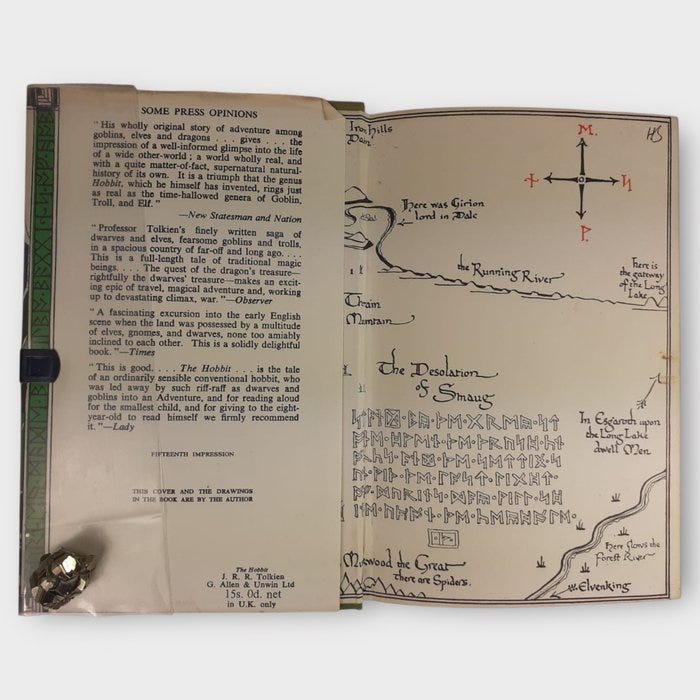 SOME PRESS OPINIONS
"His wholly original story of adventure among
goblins, elves and dragons . . . gives . . . the
impression of a well-informed glimpse into the life
of a wide other-world ; a world wholly real, and
with a quite matter-of-fact, supernatural natural-
history of its own. It is a triumph that the genus
Hobbit, which he himself has invented, rings just
as real as the time-hallowed genera of Goblin,
Troll, and Elf."
—New Statesman and Nation
"Professor Tolkien's finely written saga of
dwarves and elves, fearsome goblins and trolls,
in a spacious country of far-off and long ago. . . .
This is a full-length tale of traditional magic
beings. . . . The quest of the dragon's treasure—
rightfully the dwarves' treasure—makes an excit-
ing epic of travel, magical adventure and, working
up to devastating climax, war."—Observer
"A fascinating excursion into the early English
scene when the land was possessed by a multitude
of elves, gnomes, and dwarves, none too amiably
inclined to each other. This is a solidly delightful
book."—Times
"This is good. . . . The Hobbit . . . is the tale
of an ordinarily sensible conventional hobbit, who
was led away by such riff-raff as dwarves and
goblins into an Adventure, and for reading aloud
for the smallest child, and for giving to the eight-
year-old to read himself we firmly recommend
it."—Lady
FIFTEENTH IMPRESSION
THIS COVER AND THE DRAWINGS
IN THE BOOK ARE BY THE AUTHOR
The Hobbit
J. R. R. Tolkien
G. Allen & Unwin Ltd
15s. 0d. net
in U.K. only
Iron Hills
Dain
Here was Girion
lord in Dale
the Running River
here is
the gateway
of the Long
Lake
Mountain
The Desolation
of Smaug
In Esgaroth upon
the Long Lake
dwell Men
here flows the
Forest River
Mirkwood the Great
there are Spiders.
Elvenking